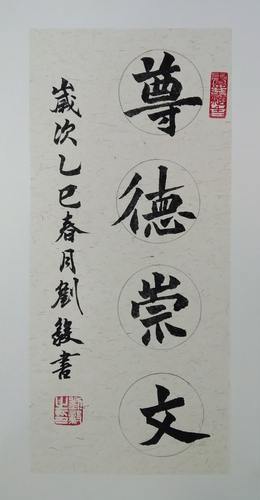 尊德崇文
歲次乙巳春月劉發書